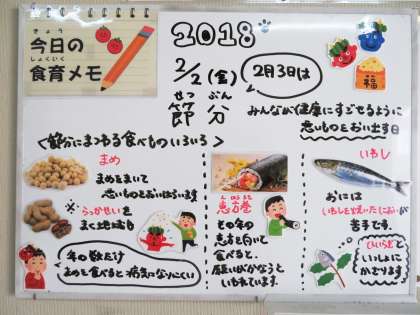 きょう
今日の
しょくいく
食育メモ
2018
2/2(金)
2月3日は
せつ ぶん
節分
みんなが健康にすごせるように
悪いものをおい出す日
福
<節分にまつわる食べものいろいろ>
まめ
まめをまいて
悪いものをおいはらいます
らっかせいを
まく地域も
年の数だけ
まめを食べると病気になりにくい
えほうまき
恵方巻
その年の
恵方を向いて
食べると、
願いがかなうと
いわれています。
いわし
おには
いわしを焼いたにおいが
苦手です。
ひいらぎと
いっしょに
かざります